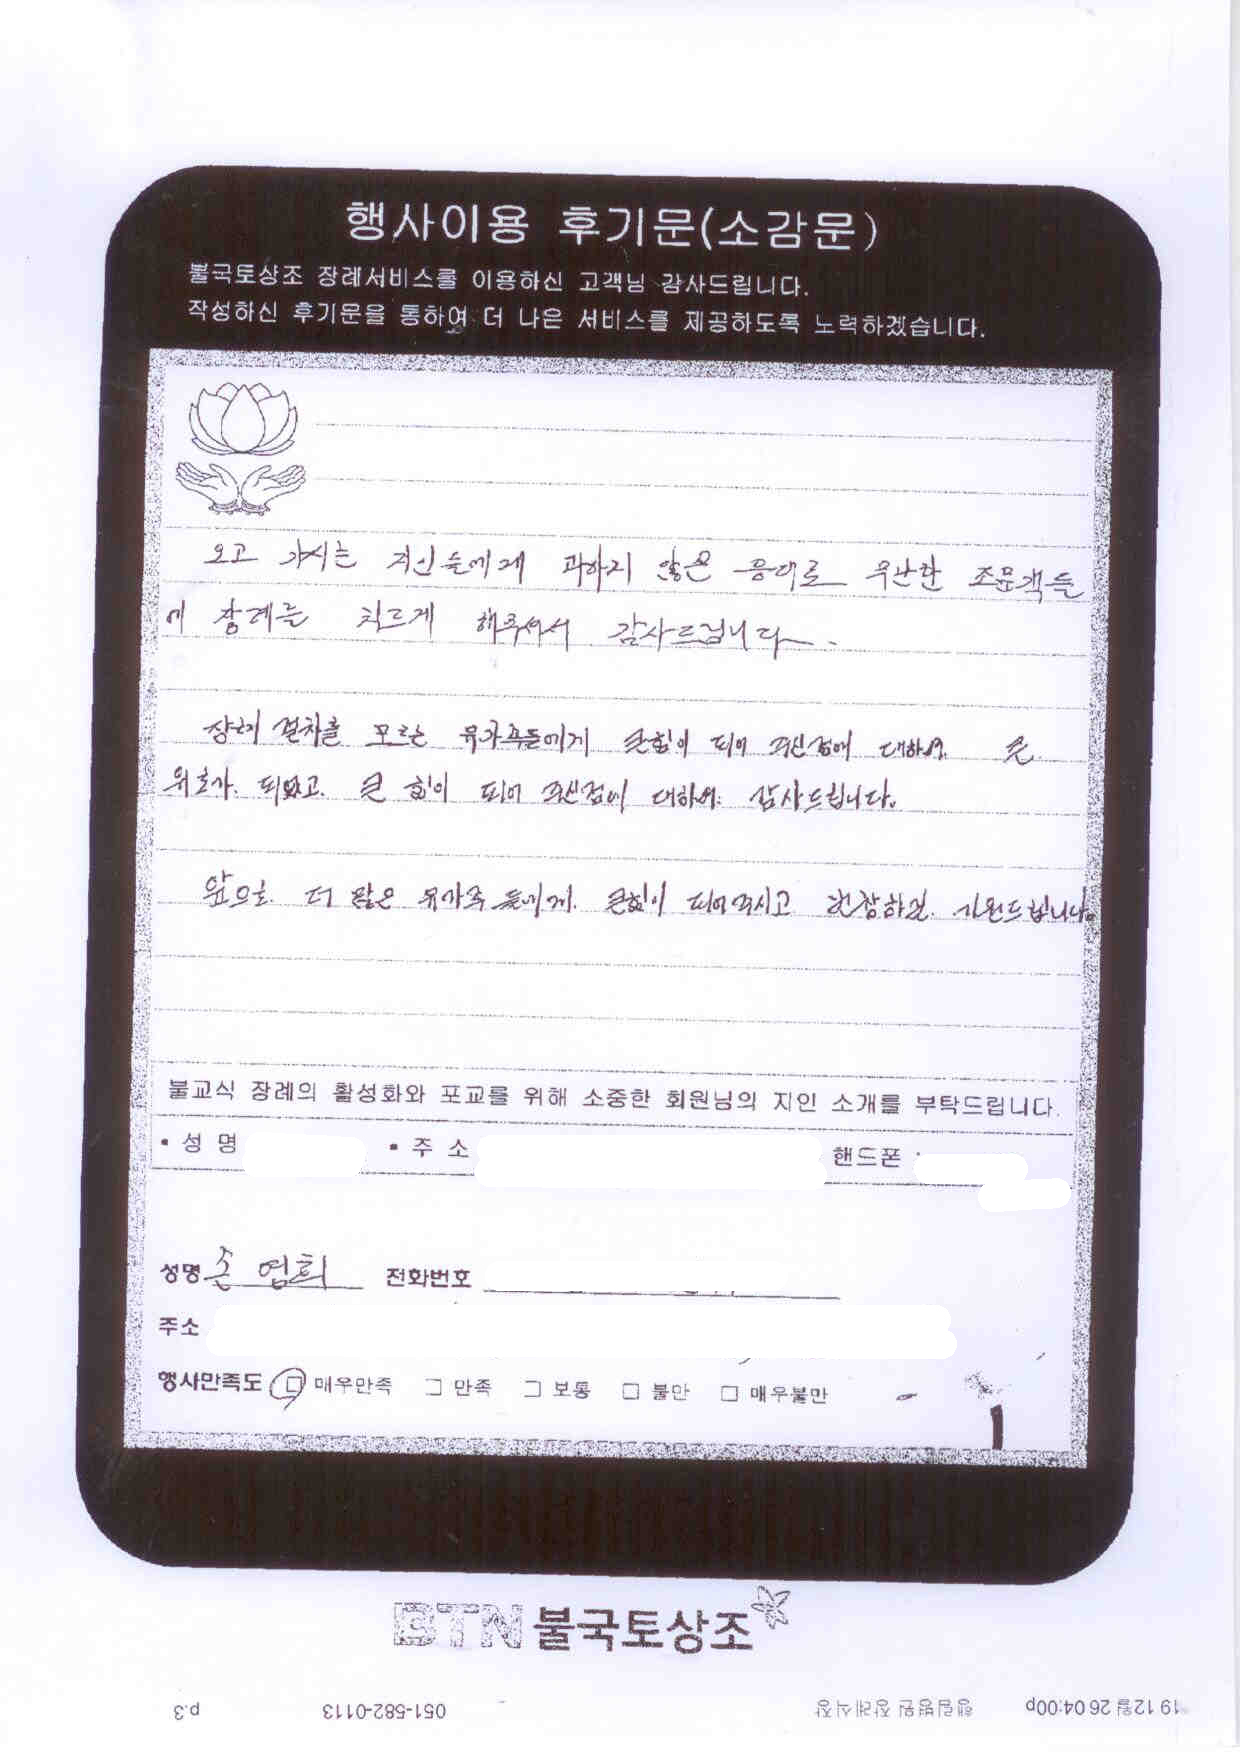 행사이용 후기문(소감문)
불국토상조 장례서비스를 이용하신 고객님 감사드립니다.
작성하신 후기문을 통하여 더 나은 서비스를 제공하도록 노력하겠습니다.
오고 가시는 지인들에게 과하지 않은 응대로 무난한 조문객들
에 장례를 치르게 해주셔서 감사드립니다.
장례 절차를 모르는 유가족들에게 큰힘이 되어 주신점에 대하여. 큰
위로가. 되었고. 큰 힘이 되어 주신점에 대하여. 감사드립니다.
앞으로. 더 많은 유가족들에게. 큰힘이 되어주시고 번창하길. 기원드립니다.
불교식 장례의 활성화와 포교를 위해 소중한 회원님의 지인 소개를 부탁드립니다.
• 성 명 • 주 소 핸드폰 :
성명 손염희 전화번호
주소
행사만족도 □ 매우만족 □ 만족 □ 보통 □ 불만 □ 매우불만
BTN 불국토상조
19 12월 26 04:00p 행림병원 장례식장 051-582-0113 p.3